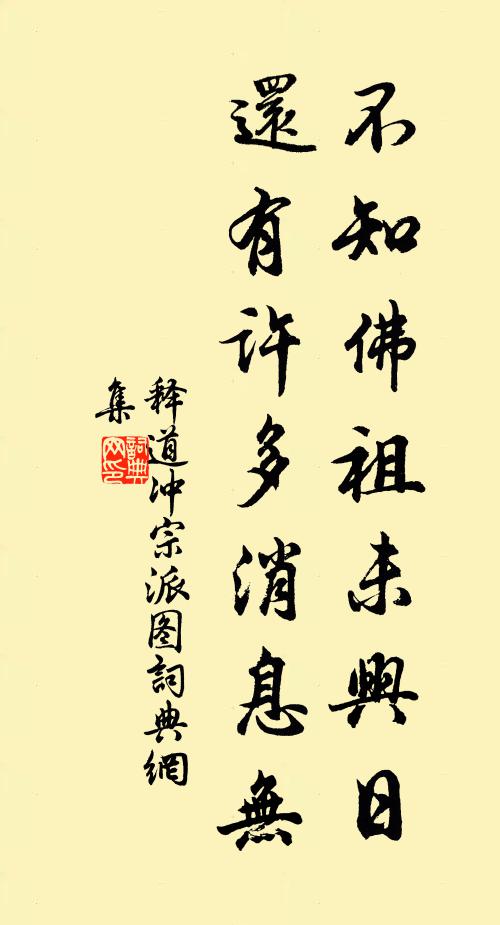 不知佛祖未興日
還有許多消息無
释道冲宗派图詞典網
集
詞典网印